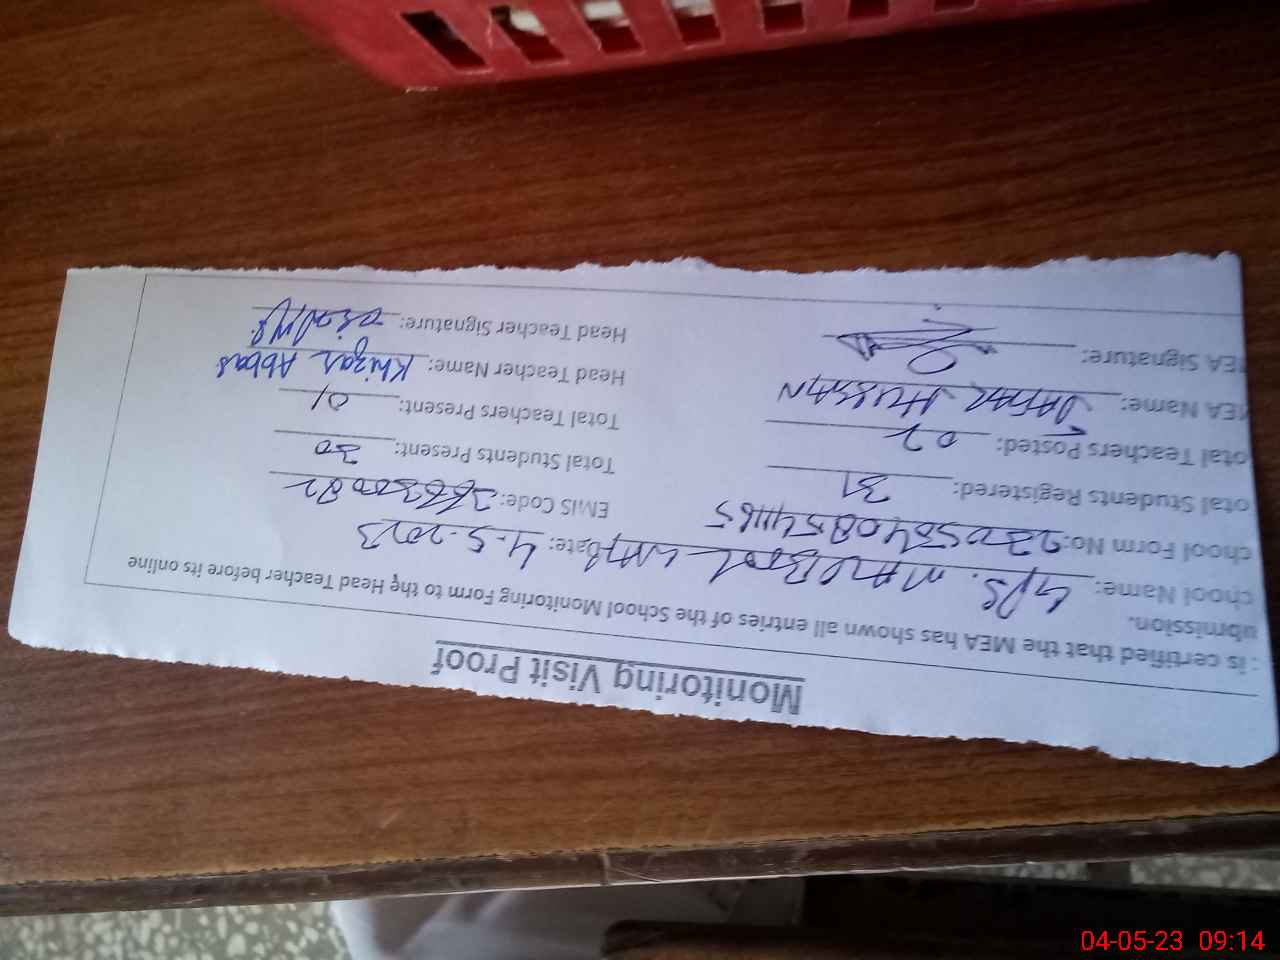 Monitoring Visit Proof
: is certified that the MEA has shown all entries of the School Monitoring Form to the Head Teacher before its online
ubmission.
chool Name: G/PS. Date: 4.5.2023
chool Form No: EMIS Code:
otal Students Registered: 31 Total Students Present: 30
otal Teachers Posted: 02 Total Teachers Present: 01
MEA Name: HUSSAIN Head Teacher Name: Khizar Abbas
MEA Signature: Head Teacher Signature:
04-05-23 09:14